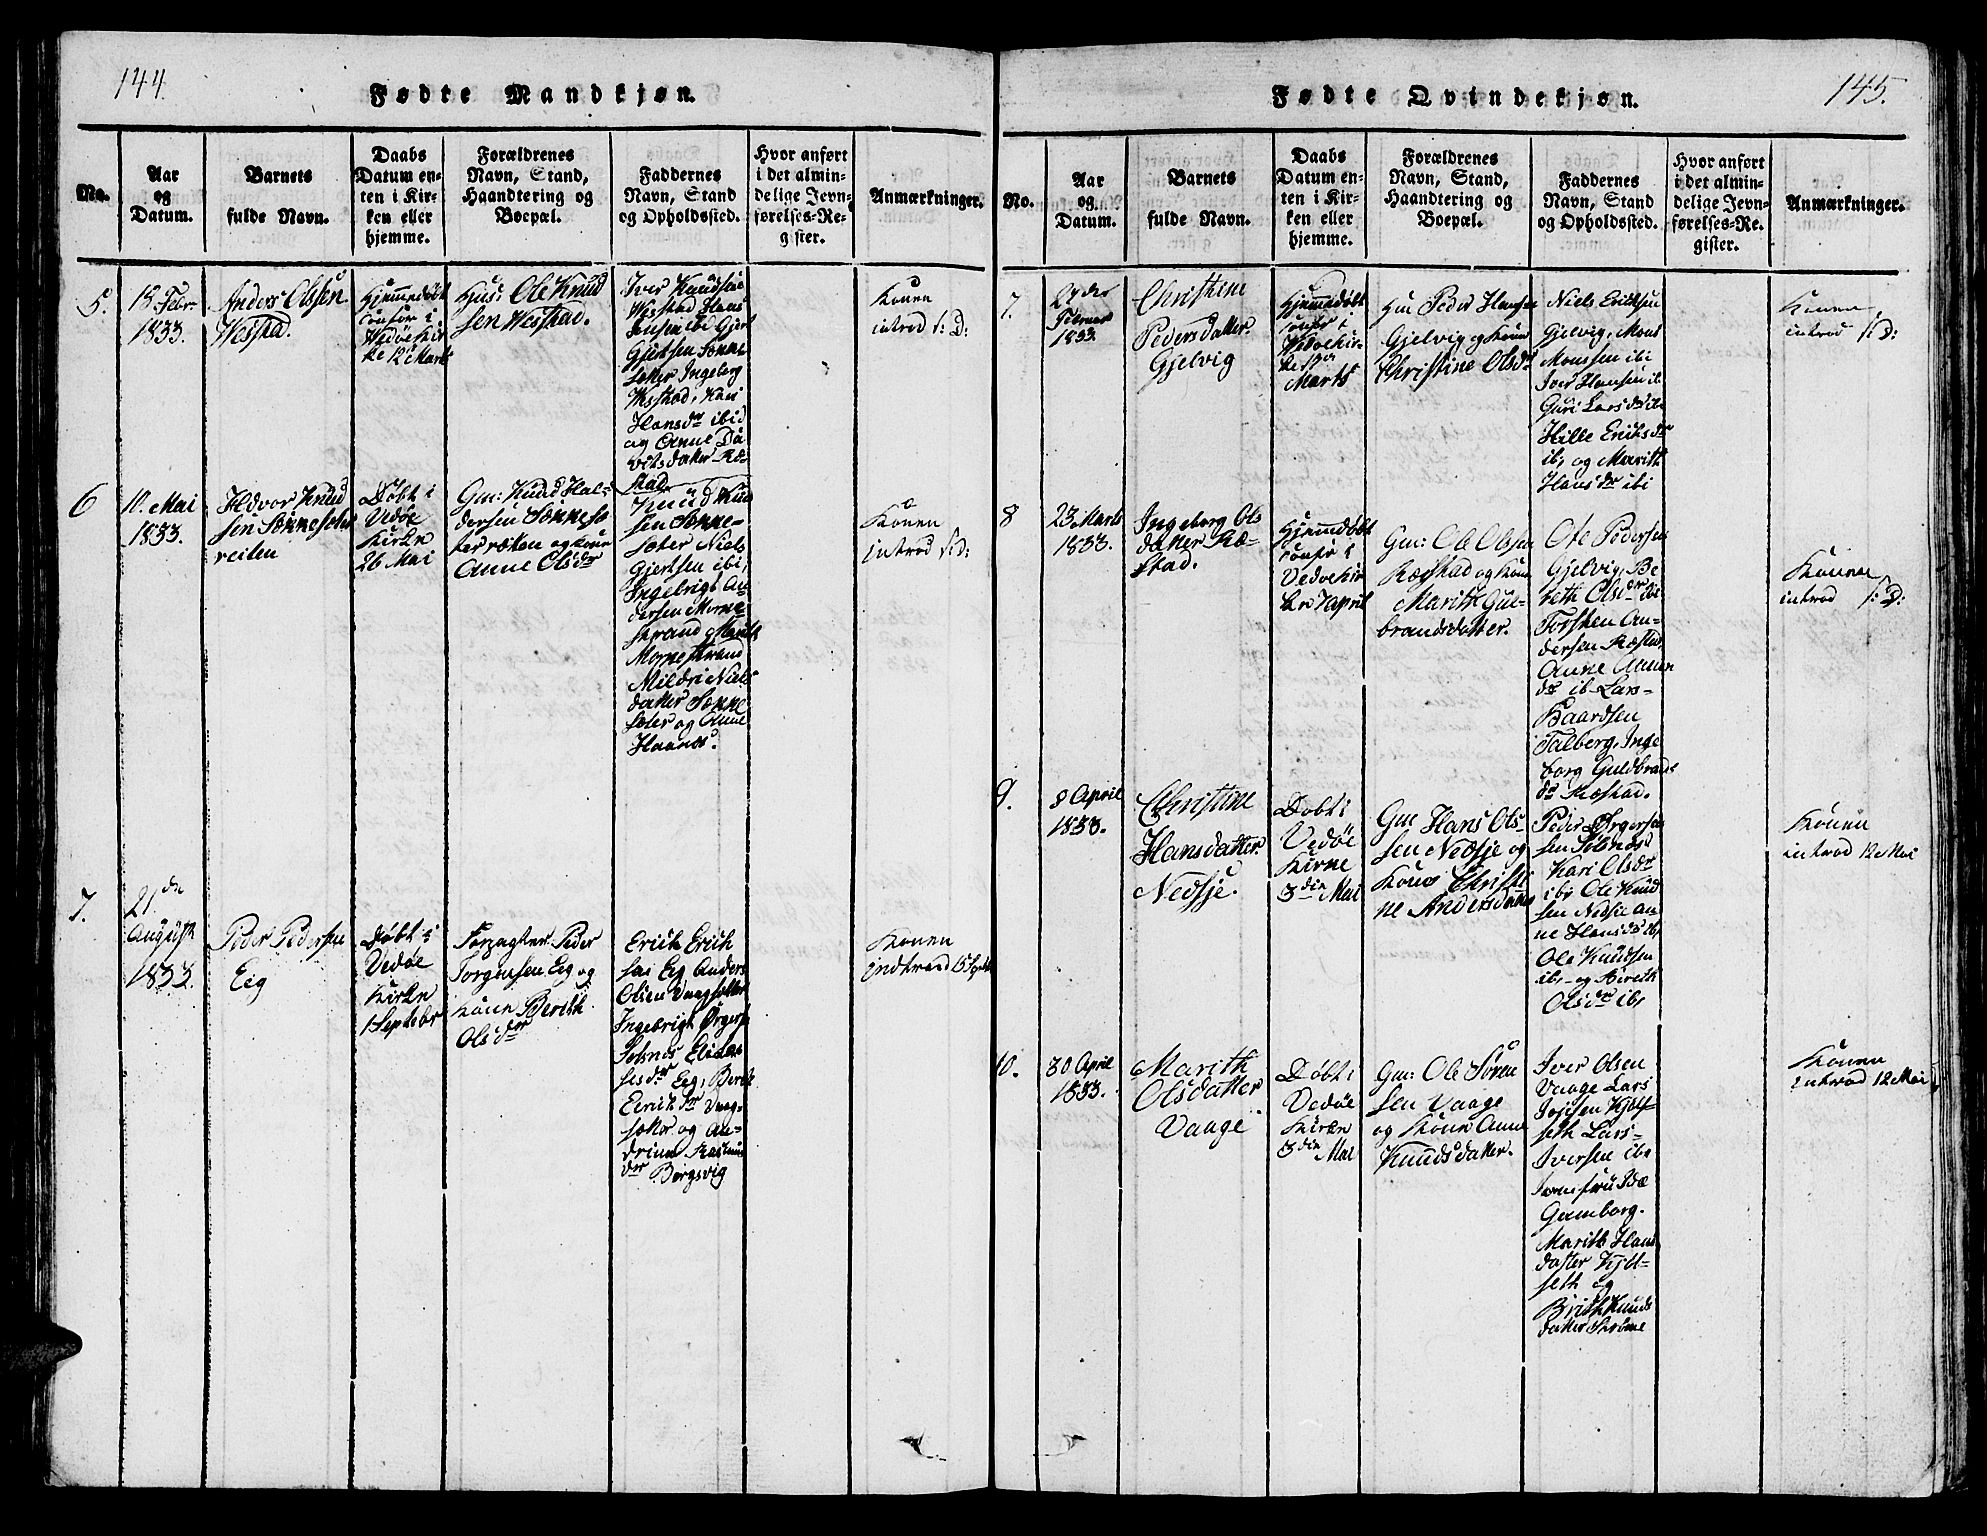 144.
Fødte Mandkjøn.
No.
Aar
og
Datum.
Barnets
fulde Navn.
Daabs
Datum en-
ten i Kir-
ken eller
hjemme.
Forældrenes
Navn, Stand,
Haandtering og
Boepæl.
Faddernes
Navn, Stand
og Opholdssted.
Hvor anført
i det almin-
delige Jevn-
førelses-Re-
gister.
Anmærkninger.
5.
18 Febr
1833.
Anders Olssen
Westad.
Hjemmedøbt
confr i
Vedøe Kir
ke 12 Marts
Huus: Ole Knud
sen Westad.
Iver Knudsen
Westad Hans
Jensen ibi Gjert
Gjertsen Sønne
sæter Ingeberg
Westad, Kari
Hansdr ibid
og Anne Da
vidsdatter Ræ-
stad.
Konen
introd s: D:
6
10. Mai
1833.
Halvor Knud
sen Sønnesæter
reiten
Døbt i
Vedøe
Kirke
26 Mai
Gm: Knud Hal-
dorsen Sønnesæ
ter ræiten og Kone
Anne Olsdr
Knud Knu
sen Sønne-
sæter Niels
Gjertsen ibi,
Ingebrigt An
dersen Morne
strand, Marith
Mornestrand
Mildri Niels
datter Sønne
sæter og Anne
Haanes.
Konen
introd s: D:
7.
21. de
August
1833.
Peder Pedersen
Eeg
Døbt i
Vedøe
Kirke
1 Septebr
Forpagter Peder
Jørgensen Eeg og
Kone Berith
Olsdr
Erich Erich
sen Eeg Anders
Olsen Vaagsæter
Ingebrigt Ørgers
Solsnes
Eeg, Berit
Erichsdr Vaag-
sæter og An-
drine Rasmus
dr Borgsvig
Konen
indtroed 15 Septbr
145.
Fødte Qvindekjøn.
No.
Aar
og
Datum.
Barnets
fulde Navn.
Daabs
Datum en-
ten i Kir-
ken eller
hjemme.
Forældrenes
Navn, Stand,
Haandtering og
Boepæl.
Faddernes
Navn, Stand
og Opholdssted.
Hvor anført
i det almin-
delige Jevn-
førelses-Re-
gister.
Anmærkninger.
7.
24 de
Februar
1833
Christine
Pedersdatter
Gjelvig
Hjemmedøbt
confr i
Vedøe Kir-
ke
Marts
Gm Peder Hansen
Gjelvig og Kone
Christine Olsdr
Niels Erichsen
Gjelvig, Mons
Monssen ibi
Iver Hansen ib
Guri Larsdr ib
Hille Eriksdr
ib, og Marith
Hansdr ibi
Konen
introd s: D:
8
23. Marts
1833.
Ingeborg Ols
datter Ræ-
stad.
Hjemmedøbt
confr i
Vedøe Kir
ke 7 April
Gm: Ole Olsen
Ræstad og Kone
Marith Gul-
brandsdatter.
Ole Pedersen
Gjelvig, Be
reth Olsdr ibi
Torsten An-
dersen Ræstad,
Anne Amun
dr ib Lars-
Baardsen
Talberg, Inge
borg Guldbrands
dr Ræstad.
Konen
introd s: D:
9.
8 April
1833.
Christine
Hansdatter
Nedsje.
Døbt i
Vedøe
Kirke
3 die Mai
Gm Hans Ols-
sen Nedsje og
Kone Christi
ne Andersdatter
Peder Ørgersen
sen Solsnes
Kari Olsdr
ibi Ole Knud
sen Nedsje An
ne Hansdr ib,
Ole Knudsen
ib, og Bereth
Olsdr ib,
Konen
introd 12 Mai
10.
30 April
1833.
Marith
Olsdatter
Vaage
Døbt i
Vedøe
Kirke
3 die Mai
Gm: Ole Søren
sen Vaage
og Kone Anne
Knudsdatter.
Iver Olsen
Vaage Lars
Kjøl-
seth Lars-
Iversen ibi
Jomfru Idæ
Gamborg.
Marith Hans
datter Kjøl-
seth og
Brith Knuds
datter
Konen
introd 12 Mai